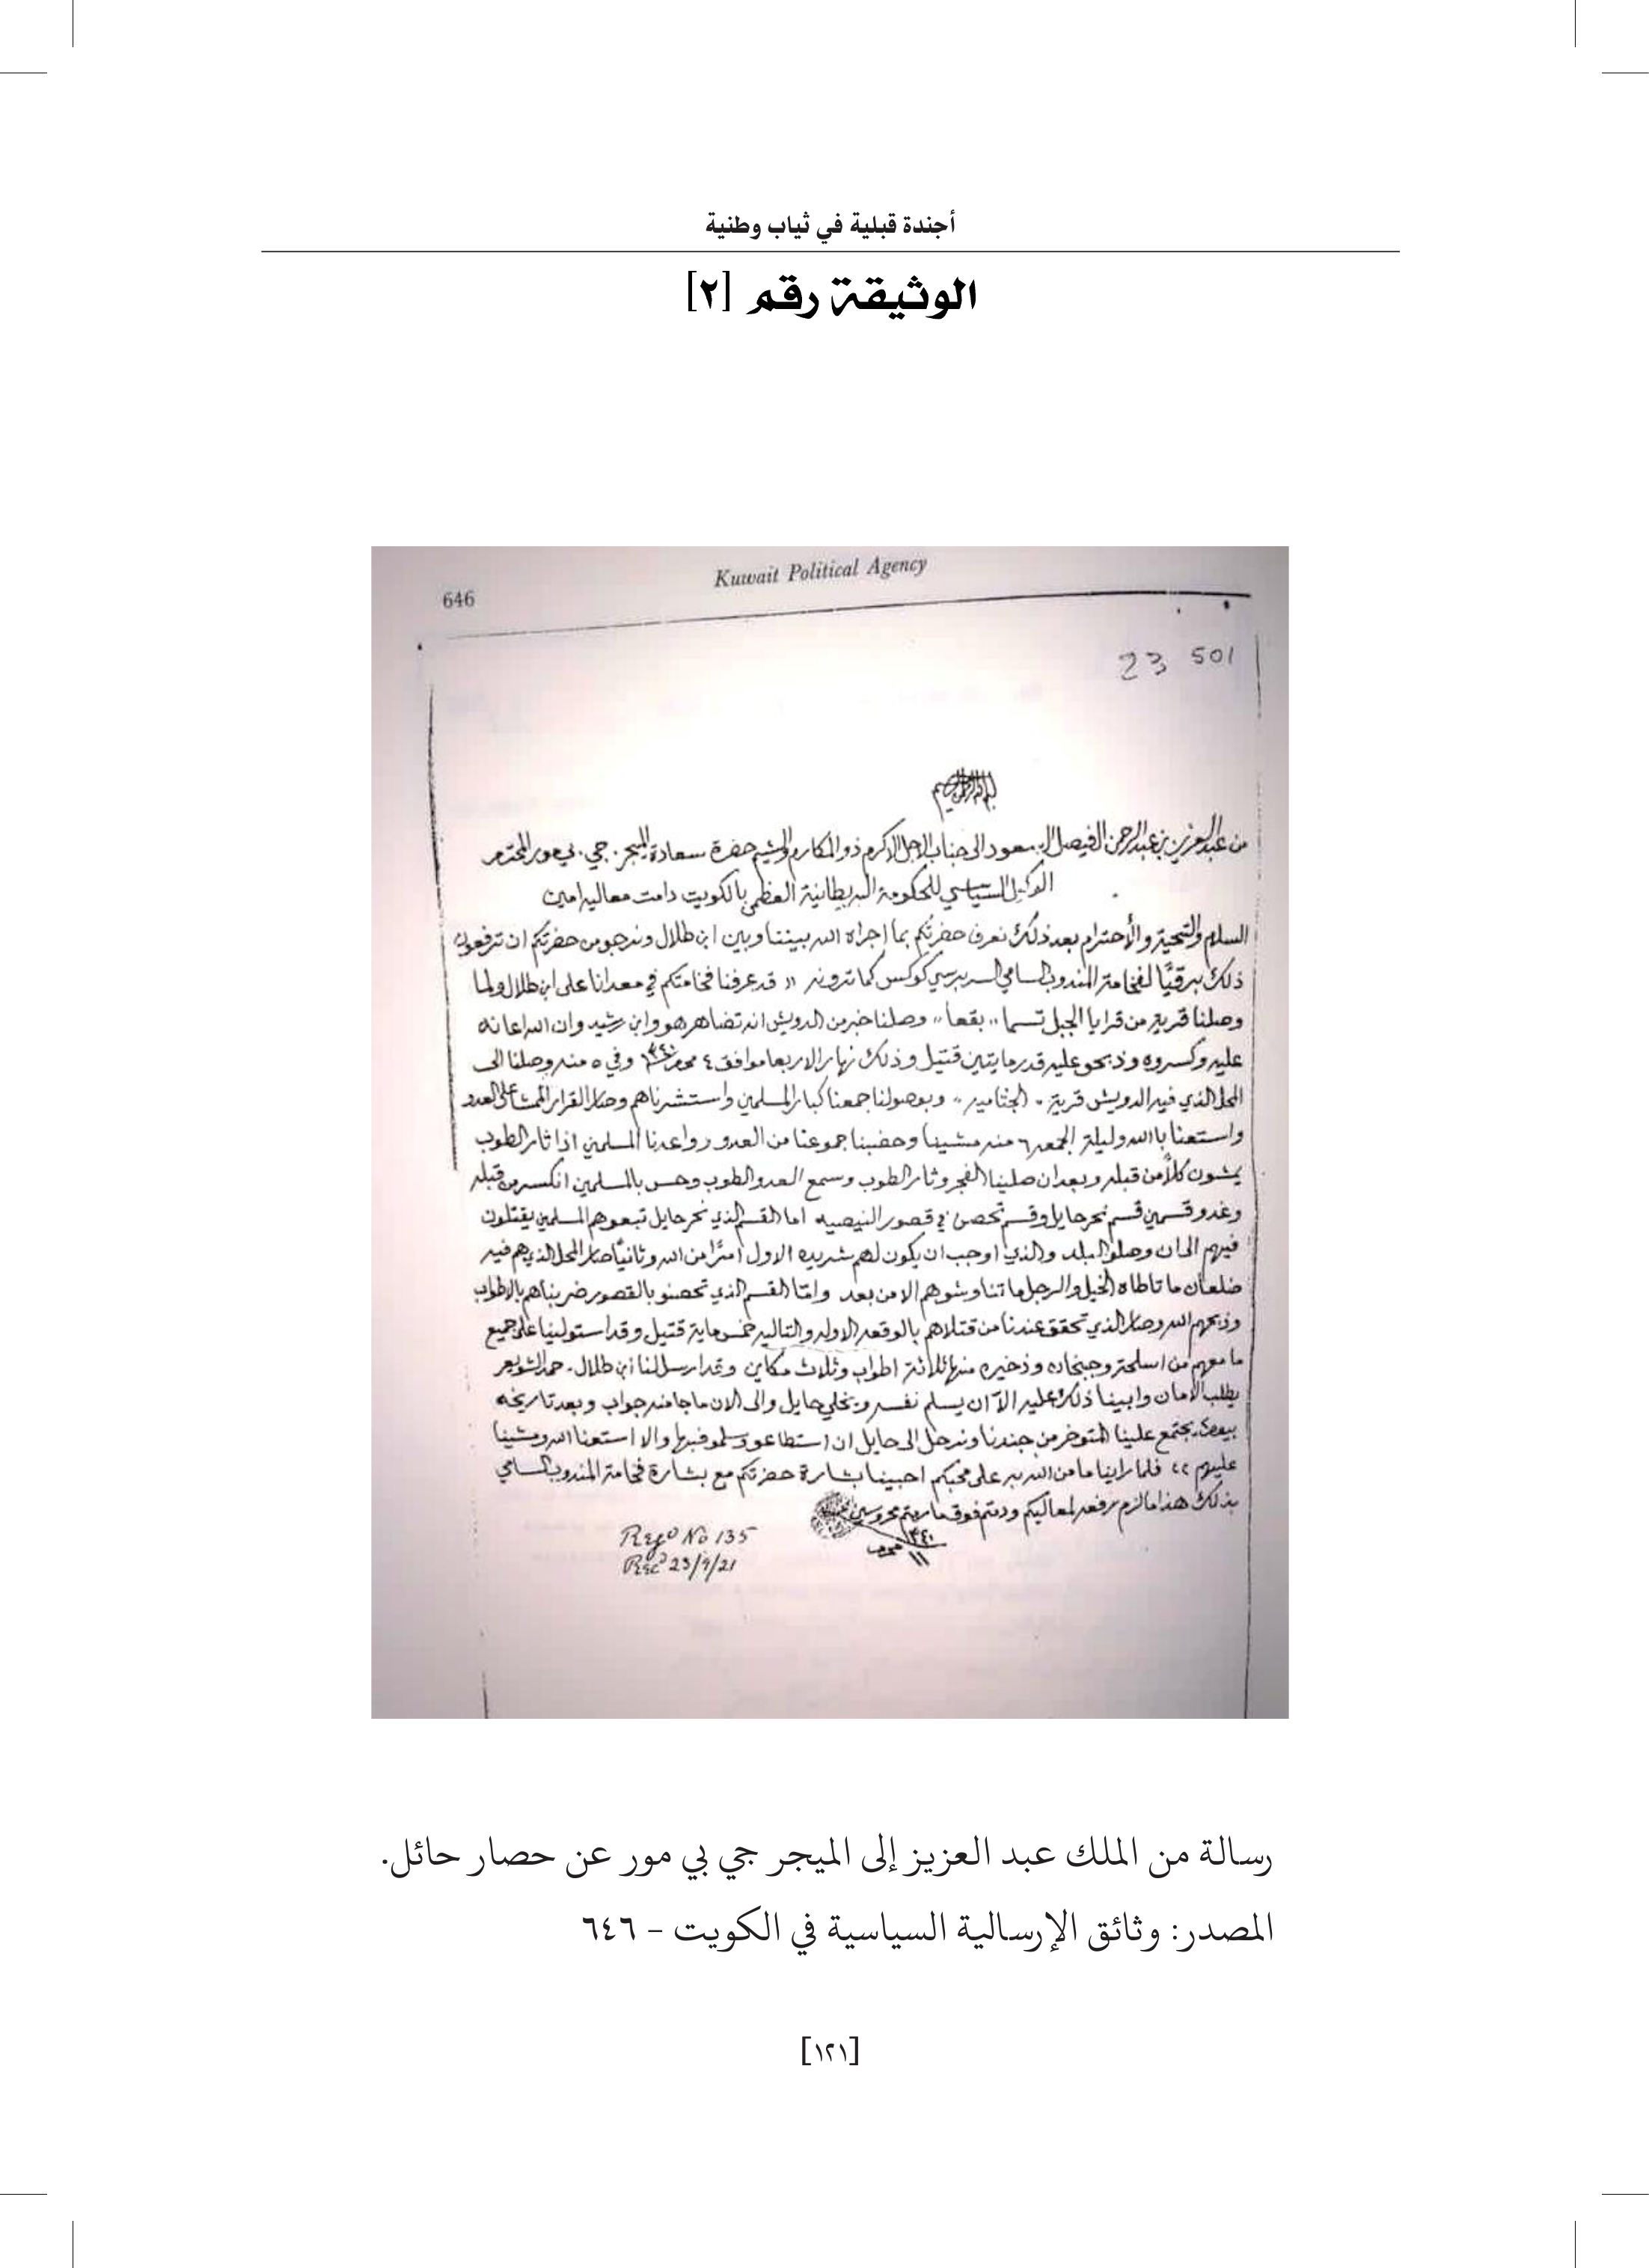 أجندة قبلية في ثياب وطنية
الوثيقة رقم [٢]
Kuwait Political Agency
646
23 501
بسم الله الرحمن الرحيم
من عبدالعزيز بن عبدالرحمن الفيصل ال سعود الى جناب الاجل الاكرم ذو المكارم والشيم حضرة سعادة الميجر جي بي مور المحترم
الوكيل السياسي للحكومة البريطانية العظمى بالكويت دامت معاليه امين
السلام والتحية والأحترام بعد ذلك نعرف حضرتكم بما اجراه الله بيننا وبين ابن طلال ونرجو من حضرتكم ان ترفعون
ذلك برقيًا لفخامة المندوب السامي السر برسي كوكس كما ترونه " قد عرفنا فخامتكم في معدانا على ابن طلال ولما
وصلنا قرية من قرايا الجبل تسما ,, بقعا ,, وصلنا خبر من الدويش انه تضاهر هو وابن رشيد وان الله اعانه
عليه وكسروه وذبحو عليه قدر مايتين قتيل وذلك نهار الاربعا موافق ٤ محرم ١٣٤٠ وفي ٥ منه وصلنا الى
المحل الذي فيه الدويش قرية ,, الجثاميه ,, وبوصولنا جمعنا كبار المسلمين واستشرناهم وصار القرار الممشا على العدو
واستعنا بالله وليلة الجمعه ٦ منه مشينا وحضبنا جموعنا من العدو وواعدنا المسلمين اذا ثار الطوب
يمشون كلاً من قبله وبعد ان صلينا الفجر وثار الطوب وسمع العدو الطوب وحس بالمسلمين انكسر من قبله
وغدو قسمين قسم نحر حايل وقسم تحصن في قصور النيصيه اما القسم الذي نحر حايل تبعوهم المسلمين يقتلون
فيهم الى ان وصلو البلد والذي اوجب ان يكون لهم شريده الاول امرًا من الله وثانيًا صار المحل الذي هم فيه
ضلعان ما تاطاه الخيل والرجل ما تناوشوهم الا من بعد وامّا القسم الذي تحصنو بالقصور ضربناهم بالاطواب
وذبحهم الله وصار الذي تحقق عندنا من قتلاهم بالوقعه الاوله والتاليه خمس ماية قتيل وقد استولينا على جميع
ما معهم من اسلحة وجبخانه وذخيره منها ثلاثة اطواب وثلاث مكاين وقد ارسل لنا ابن طلال حمد الشويعر
يطلب الامان وابينا ذلك عليه الاّ ان يسلم نفسه ويخلي حايل والى الان ما جا منه جواب وبعد تاريخه
بيومين يجتمع علينا المتوخر من جندنا ونرحل الى حايل ان استطاعو وسلمو فبها والا استعنا الله ومشينا
عليهم " فلما راينا ما من الله به على محبكم احبينا بشارة حضرتكم مع بشارة فخامة المندوب السامي
بذلك هذا ما لزم رفعه لمعاليكم ودمتم فوق ما رمتم محروسين
١٣٤٠
١١ محرم
Regd No 135
Recd 23/9/21
رسالة من الملك عبد العزيز إلى الميجر جي بي مور عن حصار حائل.
المصدر: وثائق الإرسالية السياسية في الكويت – ٦٤٦
[١٢١]